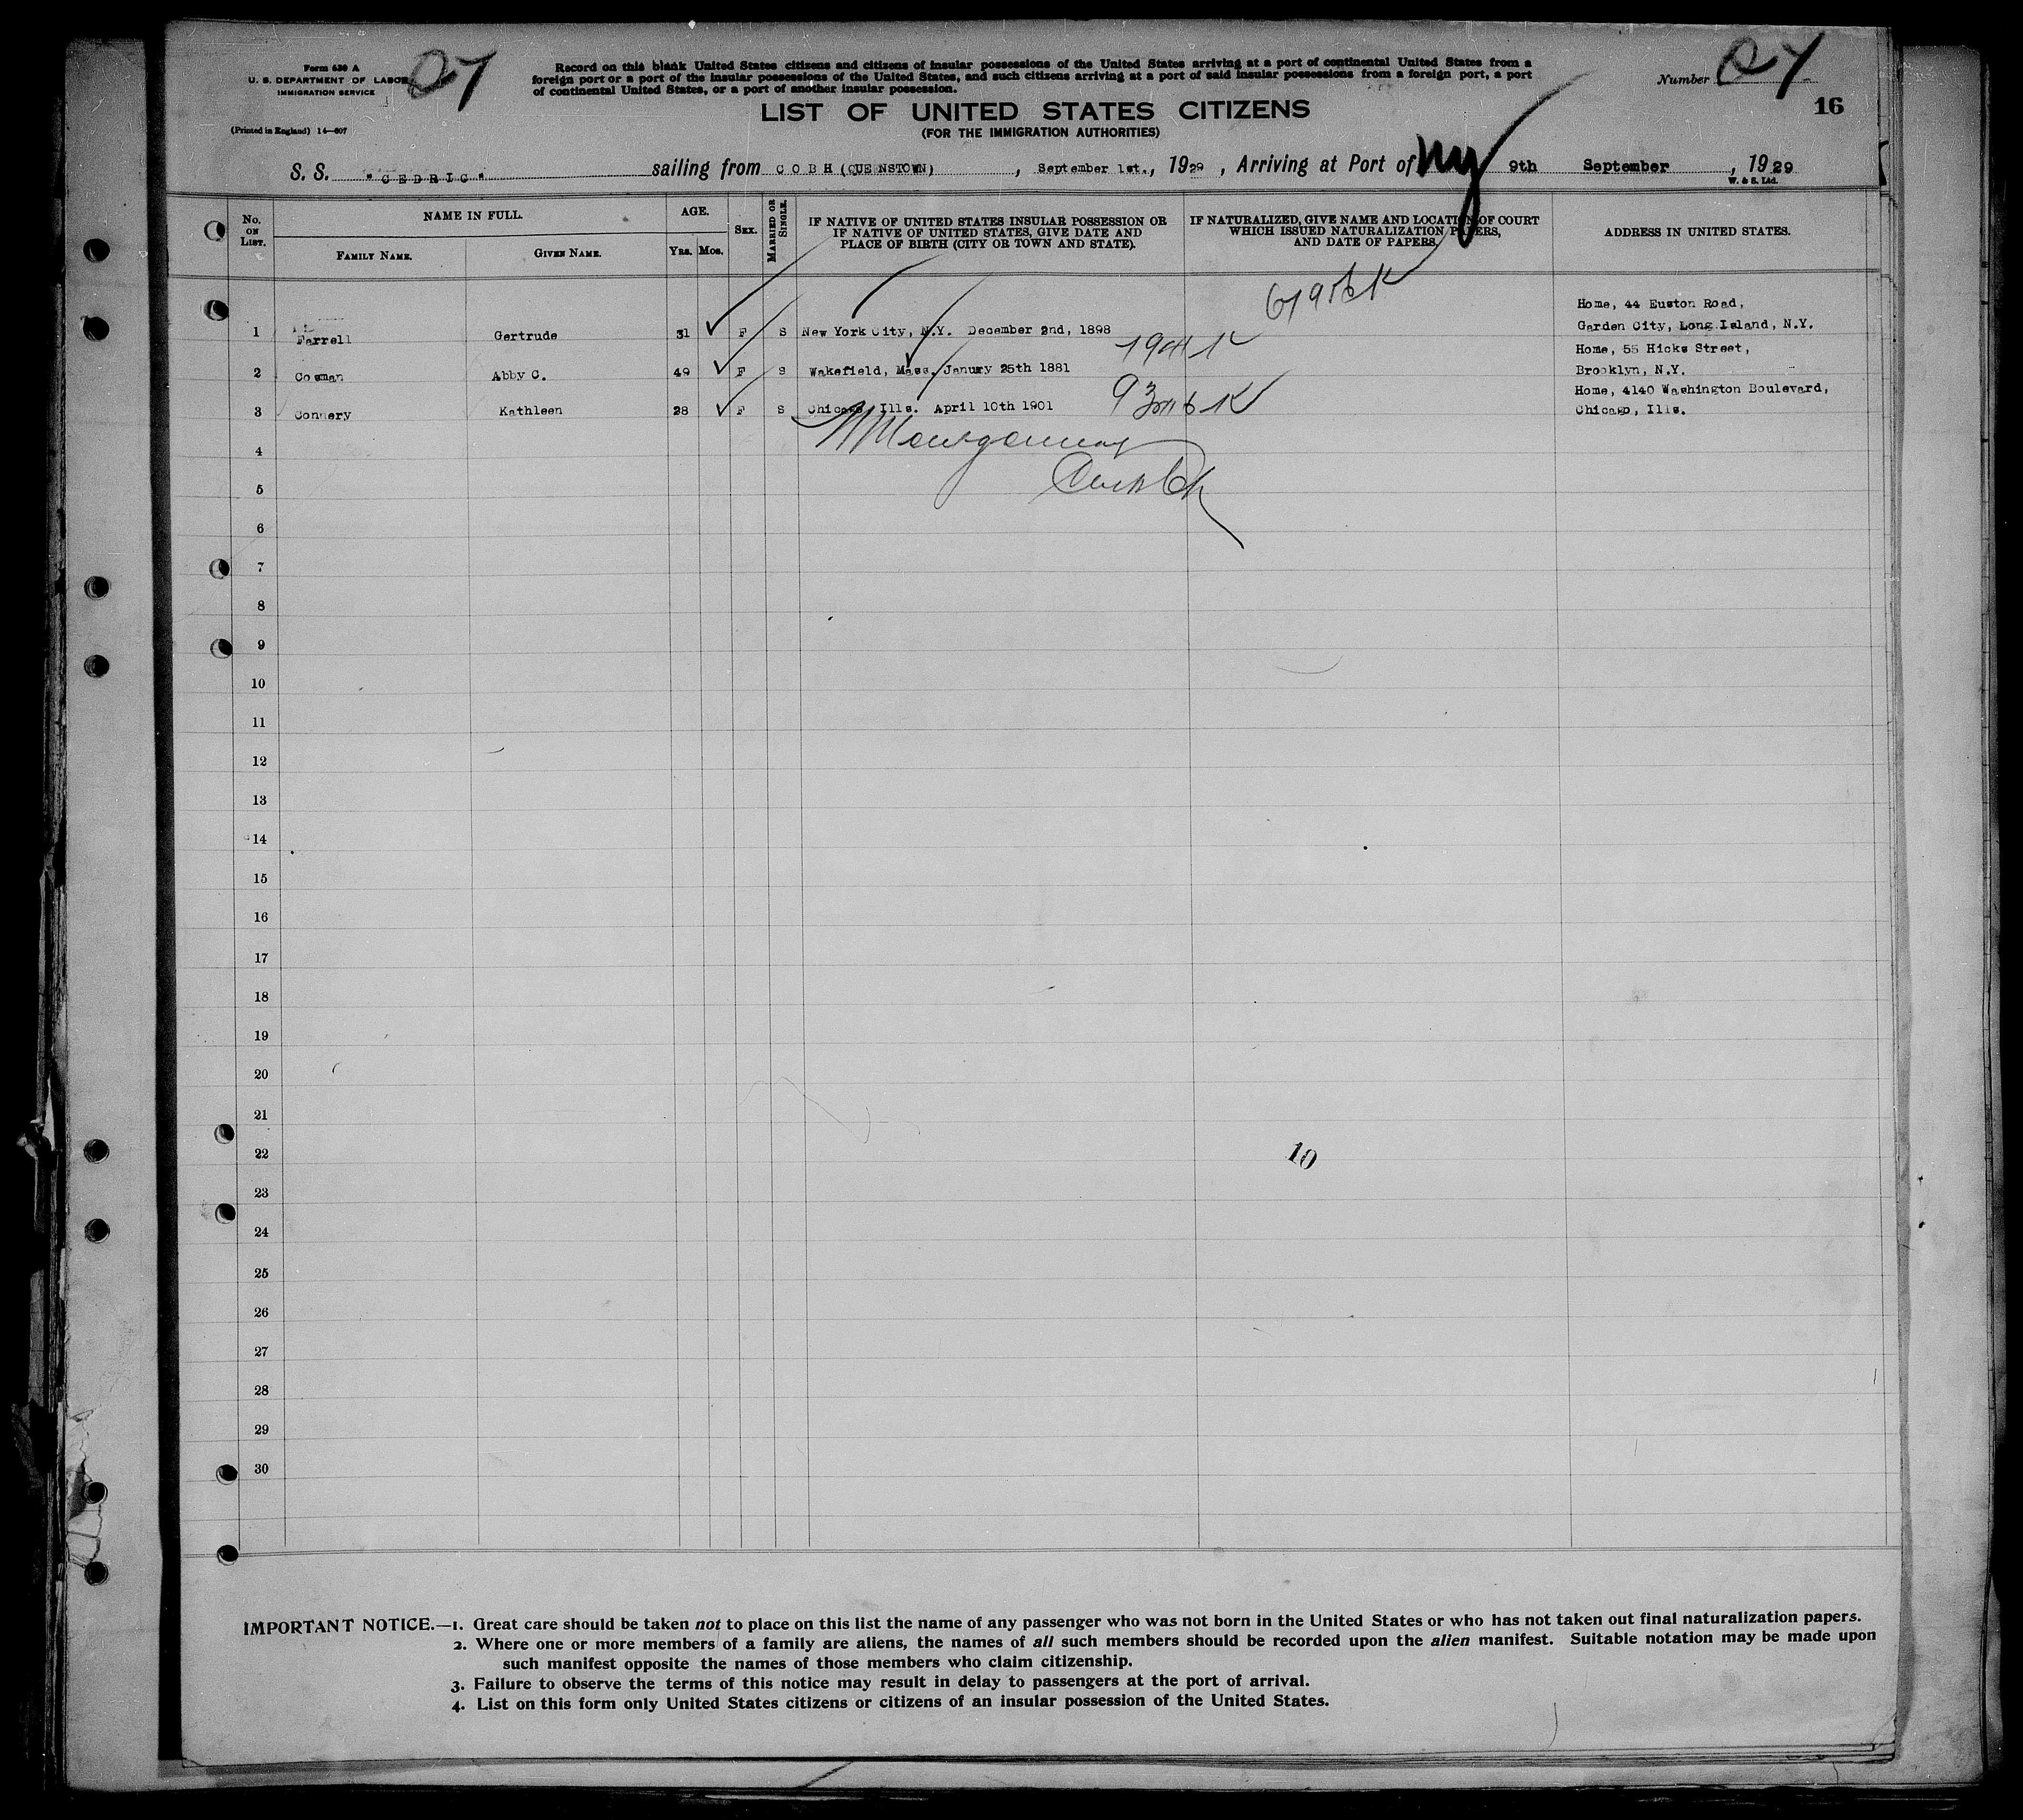 Form 630 A
U. S. DEPARTMENT OF LABOR
IMMIGRATION SERVICE
(Printed in England) 14—607
Record on this blank United States citizens and citizens of insular possessions of the United States arriving at a port of continental United States from a
foreign port or a port of the insular possessions of the United States, and such citizens arriving at a port of said insular possessions from a foreign port, a port
of continental United States, or a port of another insular possession.
Number
16
LIST OF UNITED STATES CITIZENS
(FOR THE IMMIGRATION AUTHORITIES)
S. S. "CEDRIC" sailing from COBH (QUEENSTOWN), September 1st., 1929, Arriving at Port of NY 9th September, 1929
W. & S. Ltd.
No. ON LIST. NAME IN FULL. AGE. SEX. MARRIED OR SINGLE. IF NATIVE OF UNITED STATES INSULAR POSSESSION OR IF NATIVE OF UNITED STATES, GIVE DATE AND PLACE OF BIRTH (CITY OR TOWN AND STATE). IF NATURALIZED, GIVE NAME AND LOCATION OF COURT WHICH ISSUED NATURALIZATION PAPERS, AND DATE OF PAPERS. ADDRESS IN UNITED STATES.
FAMILY NAME. GIVEN NAME. YRS. MOS.
Home, 44 Euston Road,
1 Farrell Gertrude 31 F S New York City, N.Y. December 2nd, 1898 Garden City, Long Island, N.Y.
Home, 55 Hicks Street,
2 Cosman Abby C. 49 F S Wakefield, Mass. January 25th 1881 Brooklyn, N.Y.
Home, 4140 Washington Boulevard,
3 Connery Kathleen 28 F S Chicago, Ills. April 10th 1901 Chicago, Ills.
4
5
6
7
8
9
10
11
12
13
14
15
16
17
18
19
20
21
22 10
23
24
25
26
27
28
29
30
IMPORTANT NOTICE.—1. Great care should be taken not to place on this list the name of any passenger who was not born in the United States or who has not taken out final naturalization papers.
2. Where one or more members of a family are aliens, the names of all such members should be recorded upon the alien manifest. Suitable notation may be made upon
such manifest opposite the names of those members who claim citizenship.
3. Failure to observe the terms of this notice may result in delay to passengers at the port of arrival.
4. List on this form only United States citizens or citizens of an insular possession of the United States.